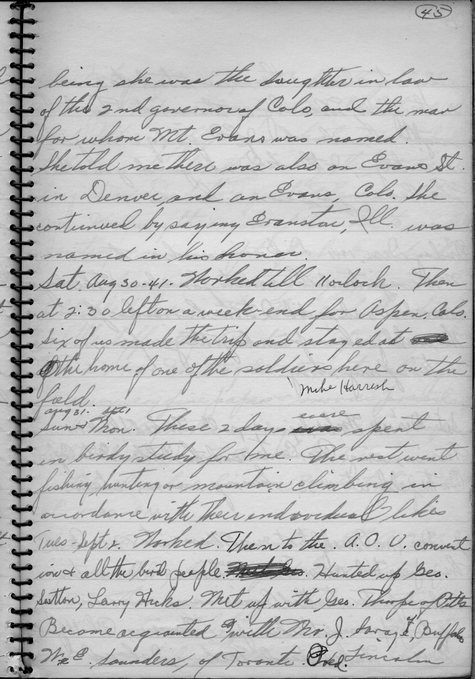 45
being she was the daughter in law
of the 2nd governor of Colo, and the man
for whom Mt. Evans was named.
She told me there was also an Evans St.
in Denver, and an Evans, Colo. She
continued by saying Evanston, Ill. was
named in his honor.
Sat. Aug 30-41. Worked till 11 oclock. Then
at 2:30 left on a week-end for Aspen, Colo.
Six of us made the trip and stayed at
the home of one of the soldiers here on the
field. Mike Harrish
Aug 31. Sept 1
Sun & Mon. These 2 days were spent
in birdy study for me. The rest went
fishing, hunting or mountain climbing in
accordance with their individual likes
Tues-Sept 2. Worked. Then to the A.O.U. convent
ion & all the bird people. Hunted up Geo.
Sutton, Larry Hicks. Met up with Geo. Thorpe of Pitts
Become acquainted with Mr. J. , Buffalo
Wm E. Saunders, of Toronto. Fred. Lincoln